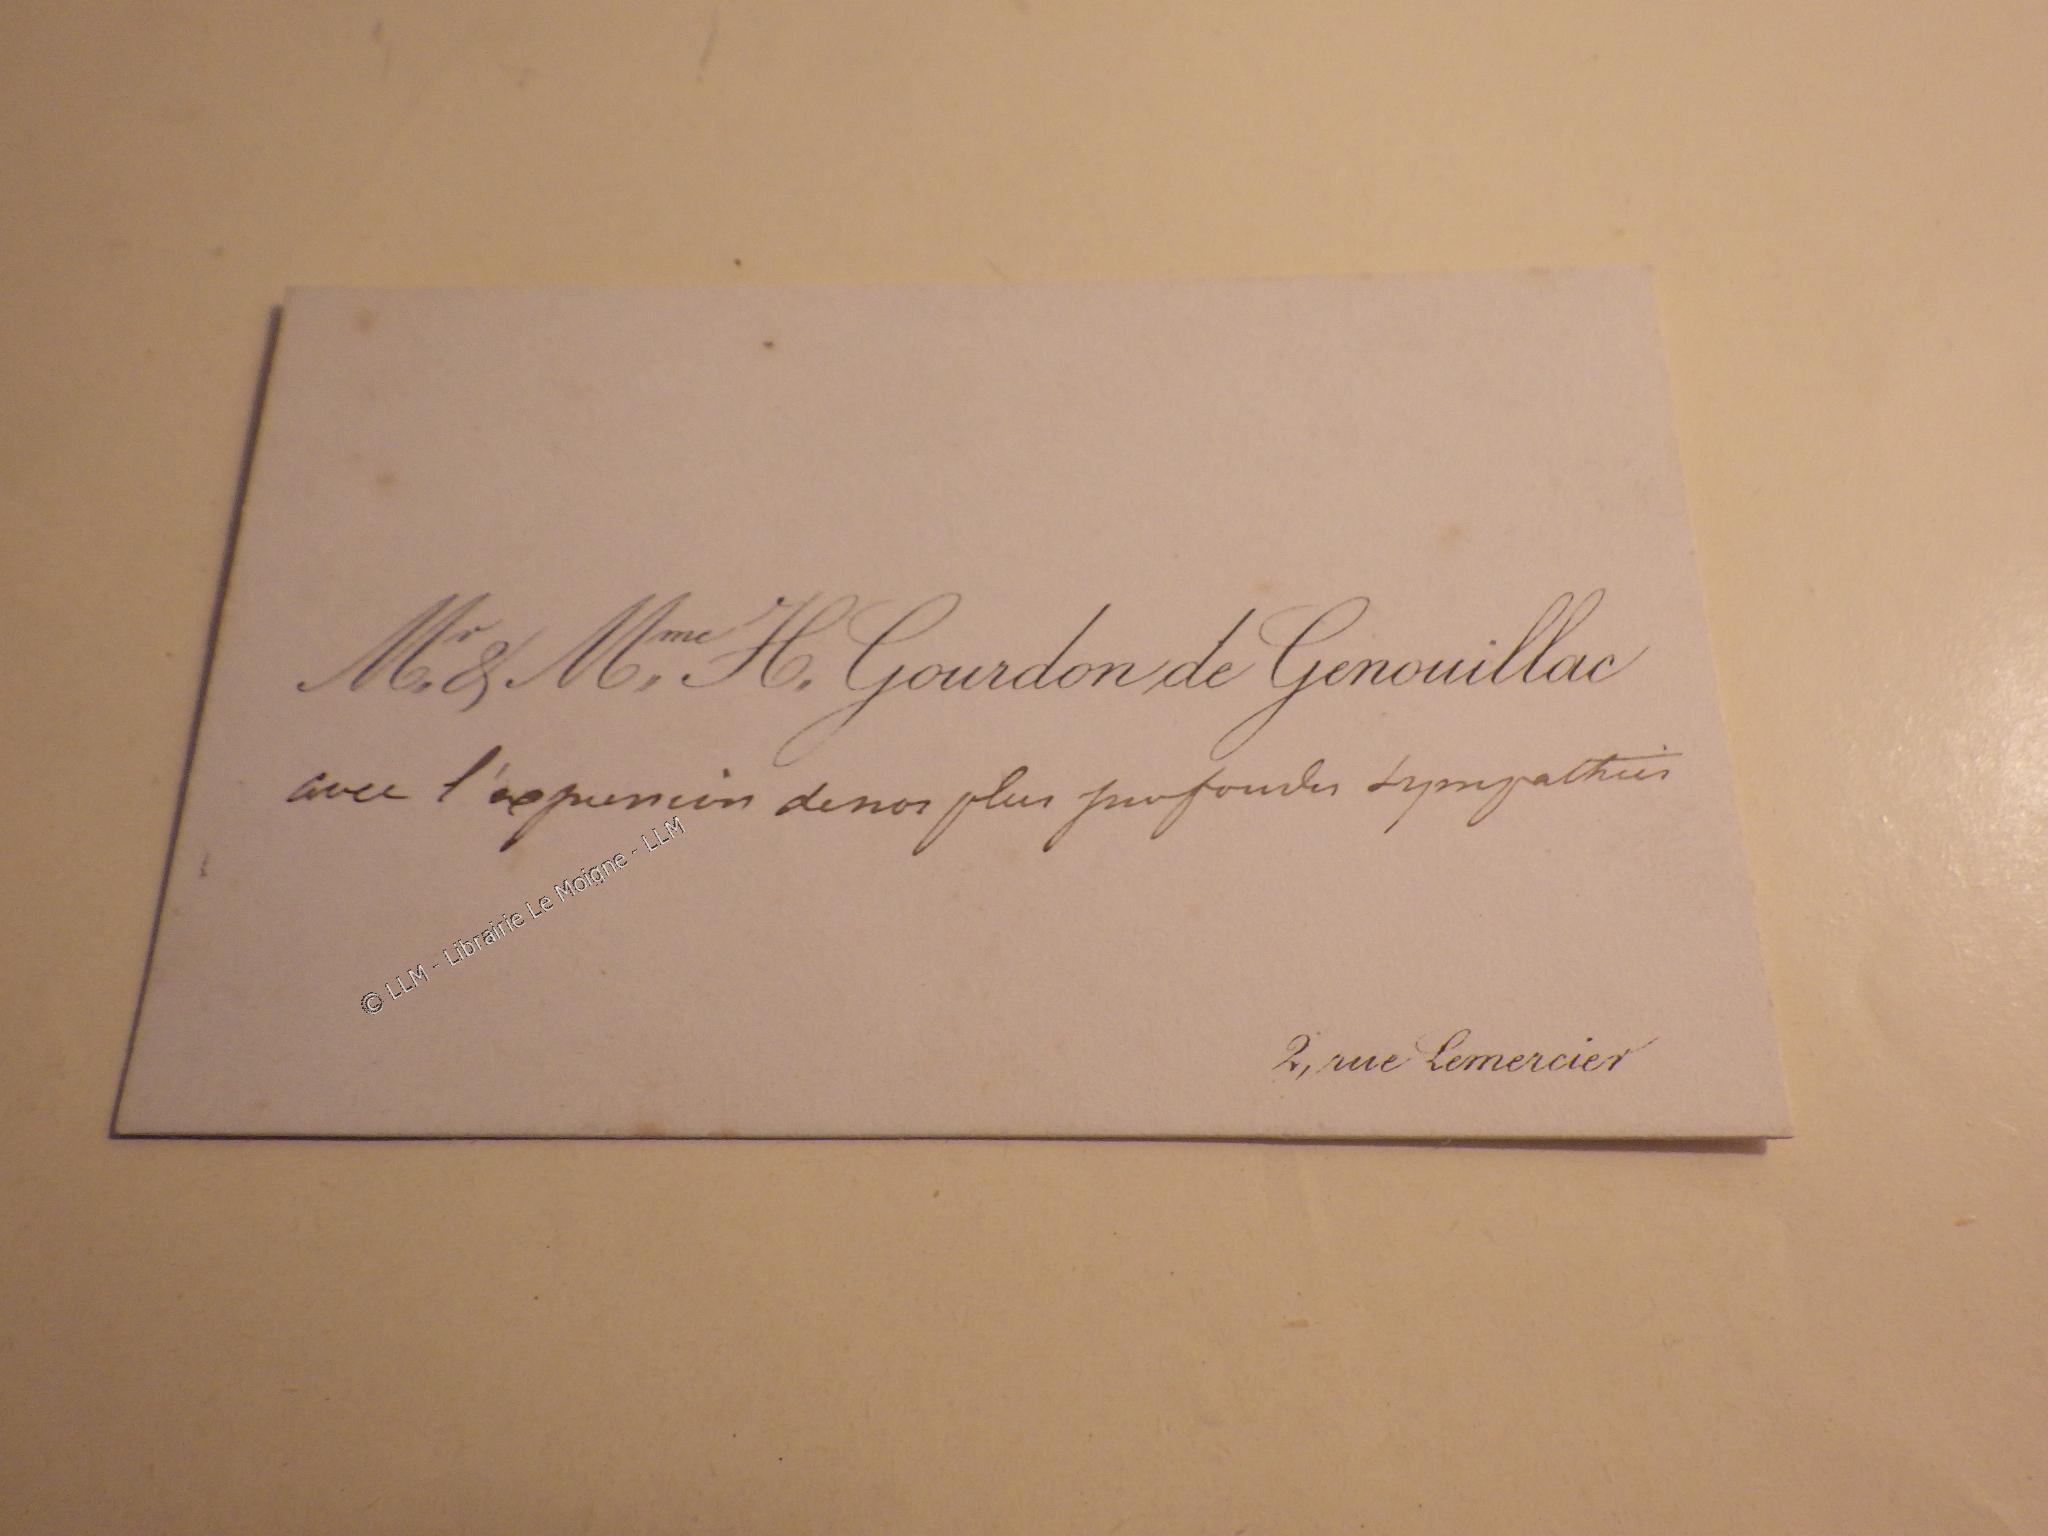 Mr. & Mme. H. Gourdon de Genouillac
avec l'expression de nos plus profondes sympathies
© LLM - Librairie Le Moigne - LLM
2, rue Lemercier